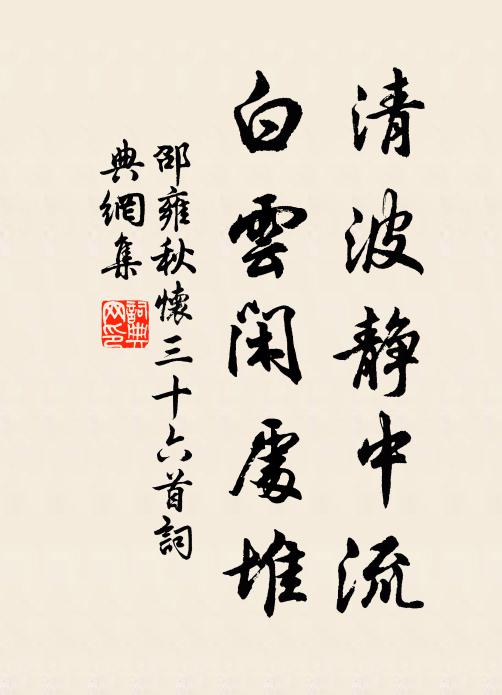 清波静中流
白雲閑處堆
邵雍秋懷三十六首詞
典網集
詞典網印